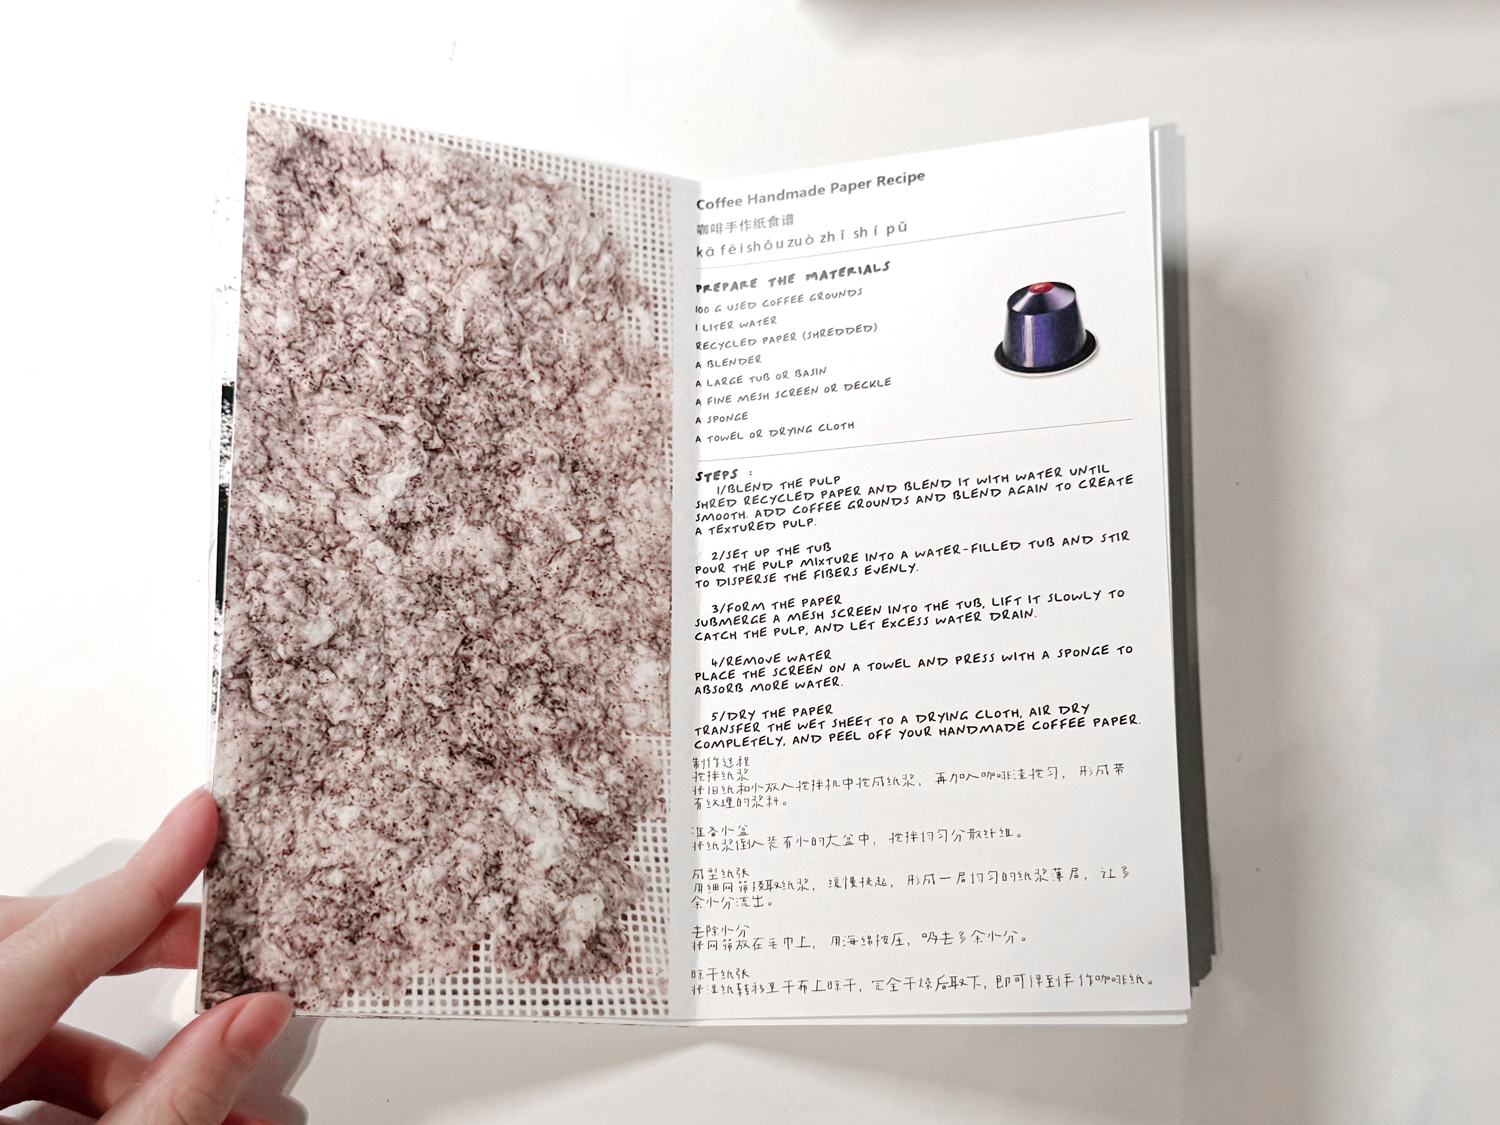 Coffee Handmade Paper Recipe
咖啡手作纸食谱
kā fēi shǒu zuò zhǐ shí pǔ
PREPARE THE MATERIALS
100 G USED COFFEE GROUNDS
1 LITER WATER
RECYCLED PAPER (SHREDDED)
A BLENDER
A LARGE TUB OR BASIN
A FINE MESH SCREEN OR DECKLE
A SPONGE
A TOWEL OR DRYING CLOTH
STEPS :
1/BLEND THE PULP
SHRED RECYCLED PAPER AND BLEND IT WITH WATER UNTIL
SMOOTH. ADD COFFEE GROUNDS AND BLEND AGAIN TO CREATE
A TEXTURED PULP.
2/SET UP THE TUB
POUR THE PULP MIXTURE INTO A WATER-FILLED TUB AND STIR
TO DISPERSE THE FIBERS EVENLY.
3/FORM THE PAPER
SUBMERGE A MESH SCREEN INTO THE TUB, LIFT IT SLOWLY TO
CATCH THE PULP, AND LET EXCESS WATER DRAIN.
4/REMOVE WATER
PLACE THE SCREEN ON A TOWEL AND PRESS WITH A SPONGE TO
ABSORB MORE WATER.
5/DRY THE PAPER
TRANSFER THE WET SHEET TO A DRYING CLOTH, AIR DRY
COMPLETELY, AND PEEL OFF YOUR HANDMADE COFFEE PAPER.
制作过程
搅拌纸浆
将旧纸和水放入搅拌机中搅成纸浆，再加入咖啡渣搅匀，形成带
有纹理的浆料。
准备水盆
将纸浆倒入装有水的大盆中，搅拌均匀分散纤维。
成型纸张
用细网筛捞取纸浆，缓慢提起，形成一层均匀的纸浆薄层，让多
余水分流出。
去除水分
将网筛放在毛巾上，用海绵按压，吸去多余水分。
晾干纸张
将湿纸转移至干布上晾干，完全干燥后取下，即可得到手作咖啡纸。